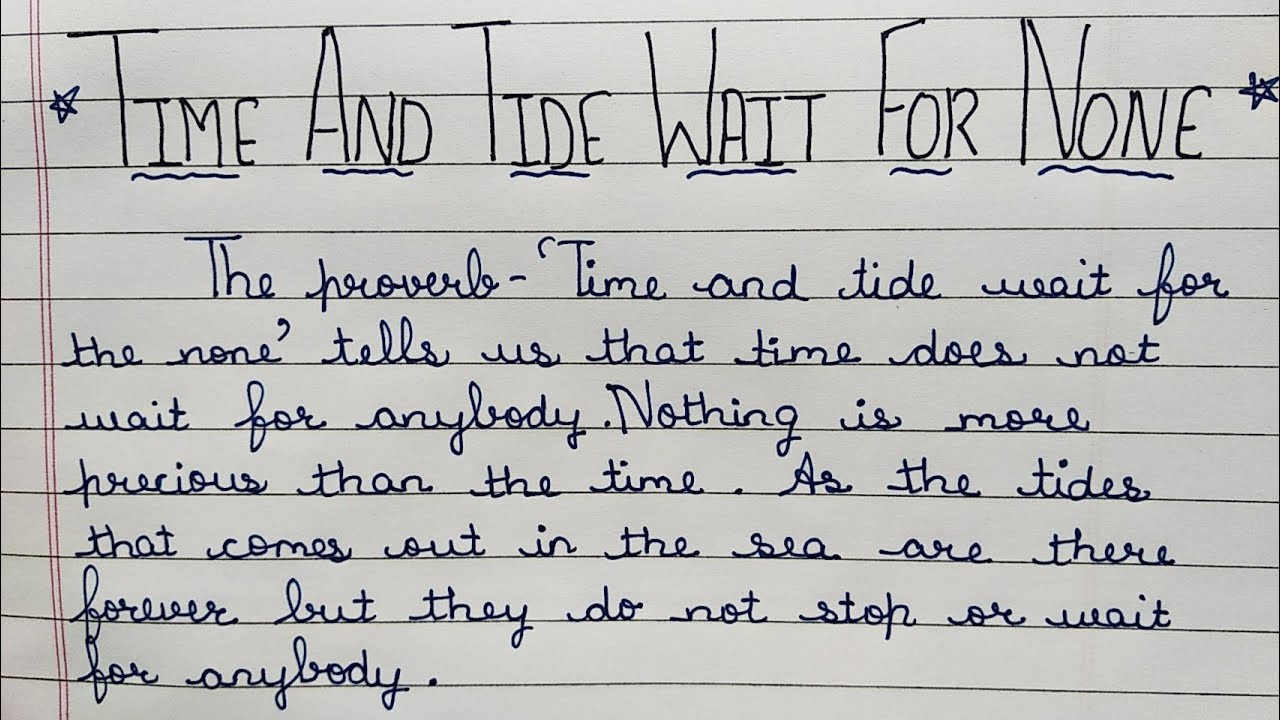 TIME AND TIDE WAIT FOR NONE
The proverb-'Time and tide wait for
the none' tells us that time does not
wait for anybody. Nothing is more
precious than the time. As the tides
that comes out in the sea are there
forever but they do not stop or wait
for anybody.